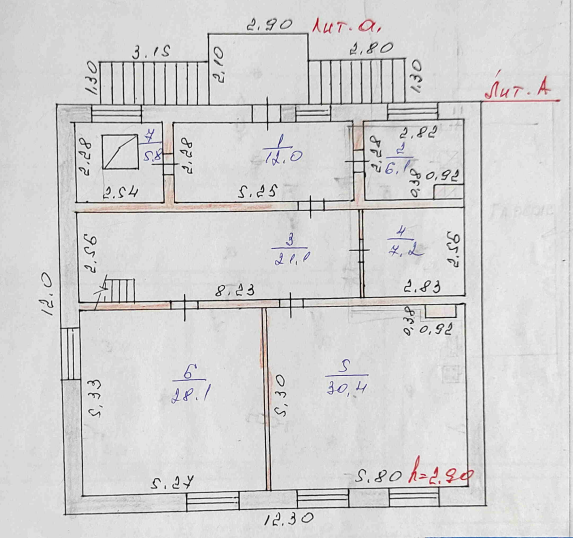 2.90 Лит. а.
3.15
2.80
1.30
2.10
1.30
Лит. А
7
5.8
2.28
2.54
1
12.0
2.28
5.25
2.82
2
6.1
2.28
0.38
0.92
3
21.1
2.56
8.23
4
7.2
2.56
2.83
12.0
0.38
0.92
6
28.1
5.33
5.27
5
30.4
5.30
5.80 h=2.90
12.30